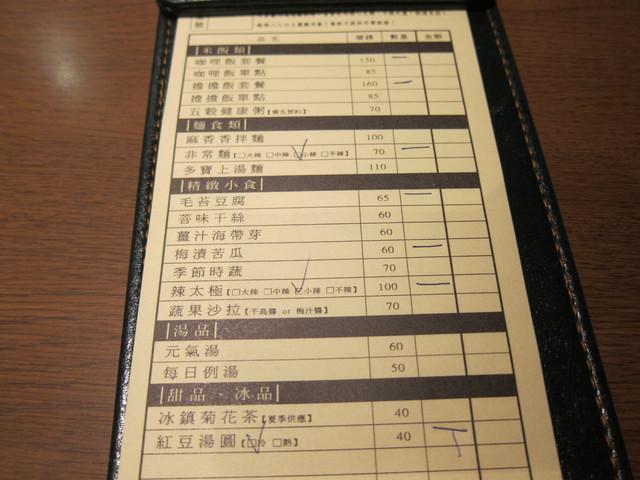 號
品名 價錢 數量 金額
米飯類
咖哩飯套餐 150 一
咖哩飯單點 85
擔擔飯套餐 160 一
擔擔飯單點 85
五穀健康粥【需先預約】 70
麵食類
麻香香拌麵 100
非常麵【□大辣 □中辣 ☑小辣 □不辣】 70 一
多寶上湯麵 110
精緻小食
毛苔豆腐 65 一
菩味干絲 60
薑汁海帶芽 60
梅漬苦瓜 60 一
季節時蔬 70
辣太極【□大辣 □中辣 ☑小辣 □不辣】 100 一
蔬果沙拉【千島醬 or 梅汁醬】 70
湯品
元氣湯 60
每日例湯 50
甜品、冰品
冰鎮菊花茶【夏季供應】 40
紅豆湯圓【☑冷 □熱】 40 丅